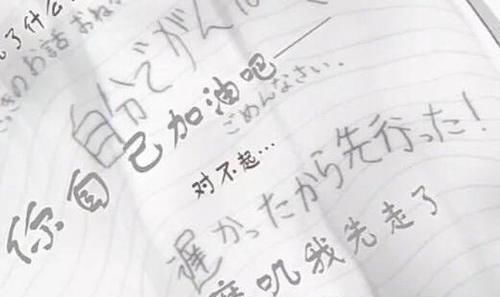 了什么
きのお話 おね
自分でがん
你自己加油吧——
ごめんなさい.
对不起...
遅かったから先行った!
叽我先走了